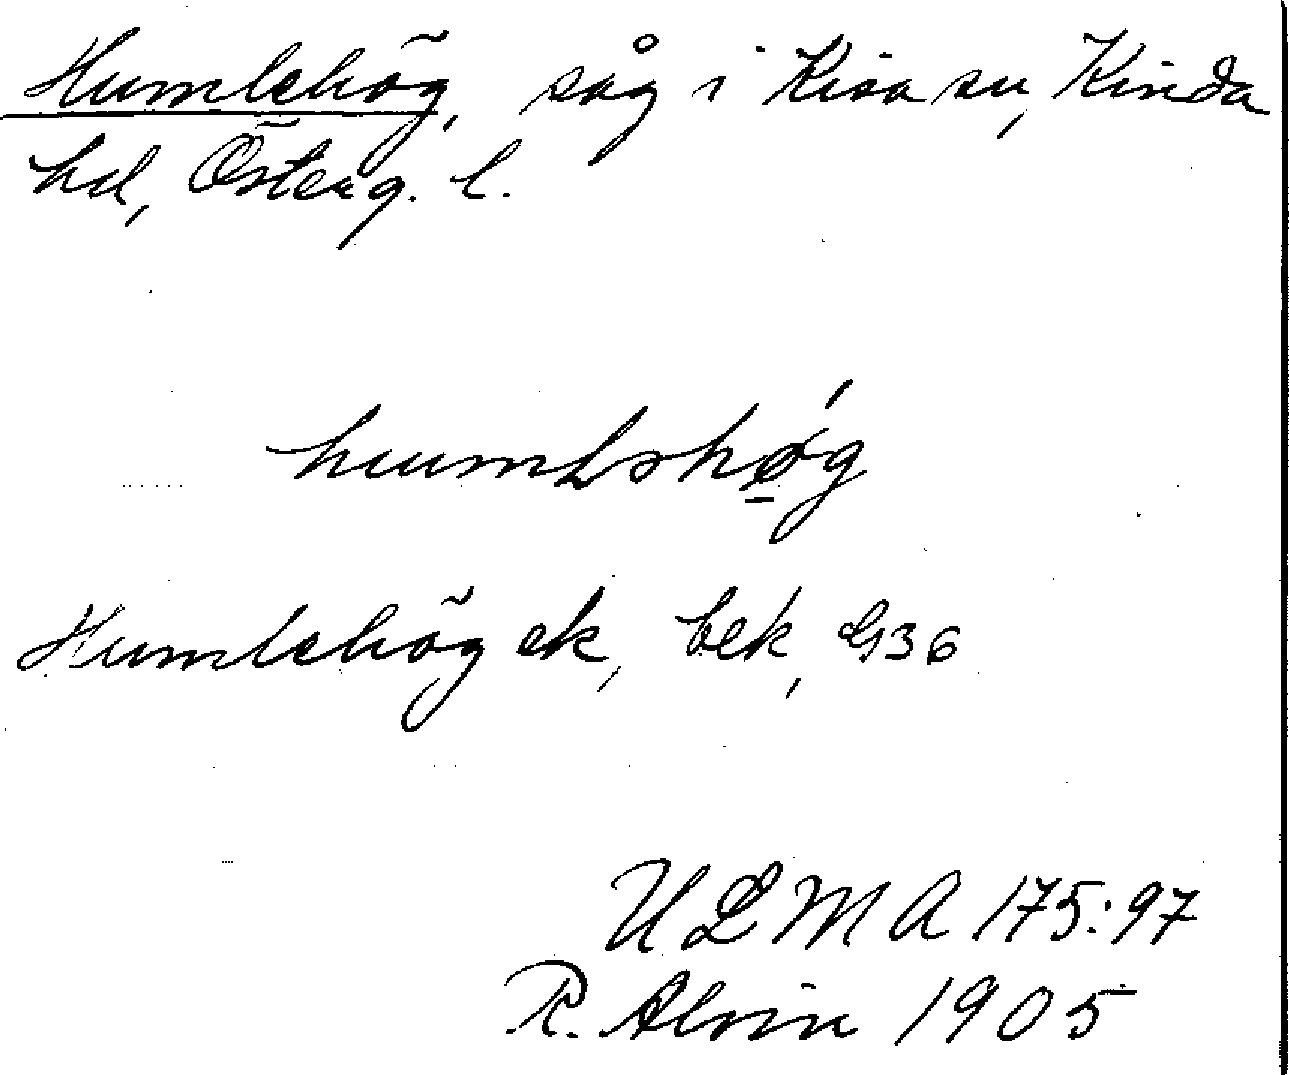 Humlehög, såg i Kisa sn, Kinda
hd, Österg. l.
humlshøg
Humlehög ek, bek, G36
ULMA 175:97
R. Alvin 1905